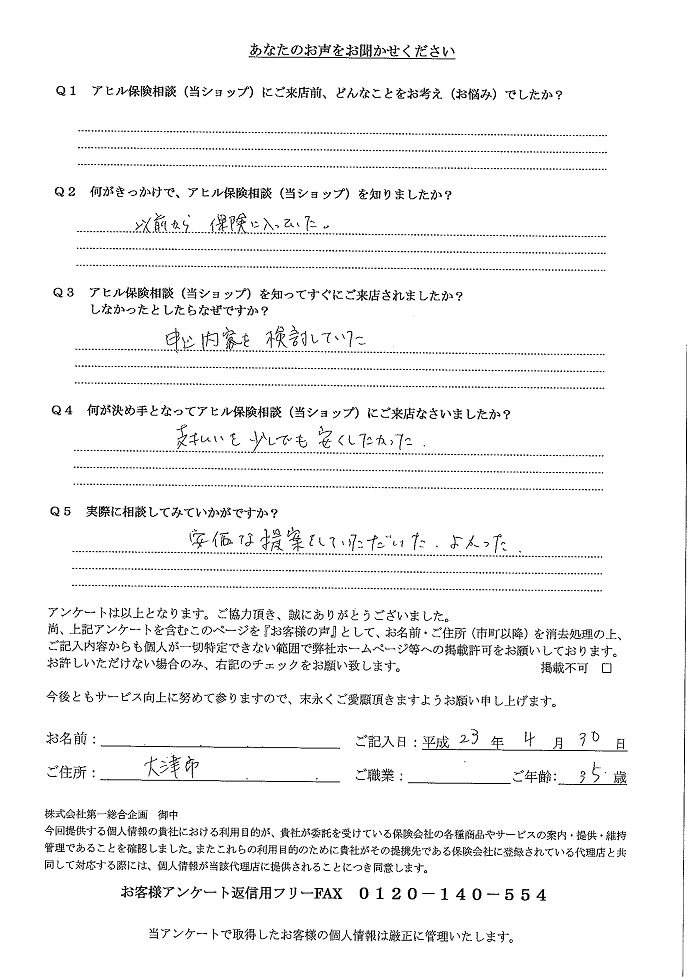 あなたのお声をお聞かせください
Q1 アヒル保険相談（当ショップ）にご来店前、どんなことをお考え（お悩み）でしたか？
Q2 何がきっかけで、アヒル保険相談（当ショップ）を知りましたか？
以前から 保険に入っていた。
Q3 アヒル保険相談（当ショップ）を知ってすぐにご来店されましたか？
しなかったとしたらなぜですか？
申込内容を検討していた
Q4 何が決め手となってアヒル保険相談（当ショップ）にご来店なさいましたか？
支払いを少しでも安くしたかった．
Q5 実際に相談してみていかがですか？
安価な提案をしていただいた．よかった．
アンケートは以上となります。ご協力頂き、誠にありがとうございました。
尚、上記アンケートを含むこのページを『お客様の声』として、お名前・ご住所（市町以降）を消去処理の上、
ご記入内容からも個人が一切特定できない範囲で弊社ホームページ等への掲載許可をお願いしております。
お許しいただけない場合のみ、右記のチェックをお願い致します。 掲載不可 □
今後ともサービス向上に努めて参りますので、末永くご愛顧頂きますようお願い申し上げます。
お名前： ご記入日：平成 23 年 4 月 30 日
ご住所： 大津市 ご職業： ご年齢： 35 歳
株式会社第一総合企画 御中
今回提供する個人情報の貴社における利用目的が、貴社が委託を受けている保険会社の各種商品やサービスの案内・提供・維持
管理であることを確認しました。またこれらの利用目的のために貴社がその提携先である保険会社に登録されている代理店と共
同して対応する際には、個人情報が当該代理店に提供されることにつき同意します。
お客様アンケート返信用フリーFAX 0120－140－554
当アンケートで取得したお客様の個人情報は厳正に管理いたします。